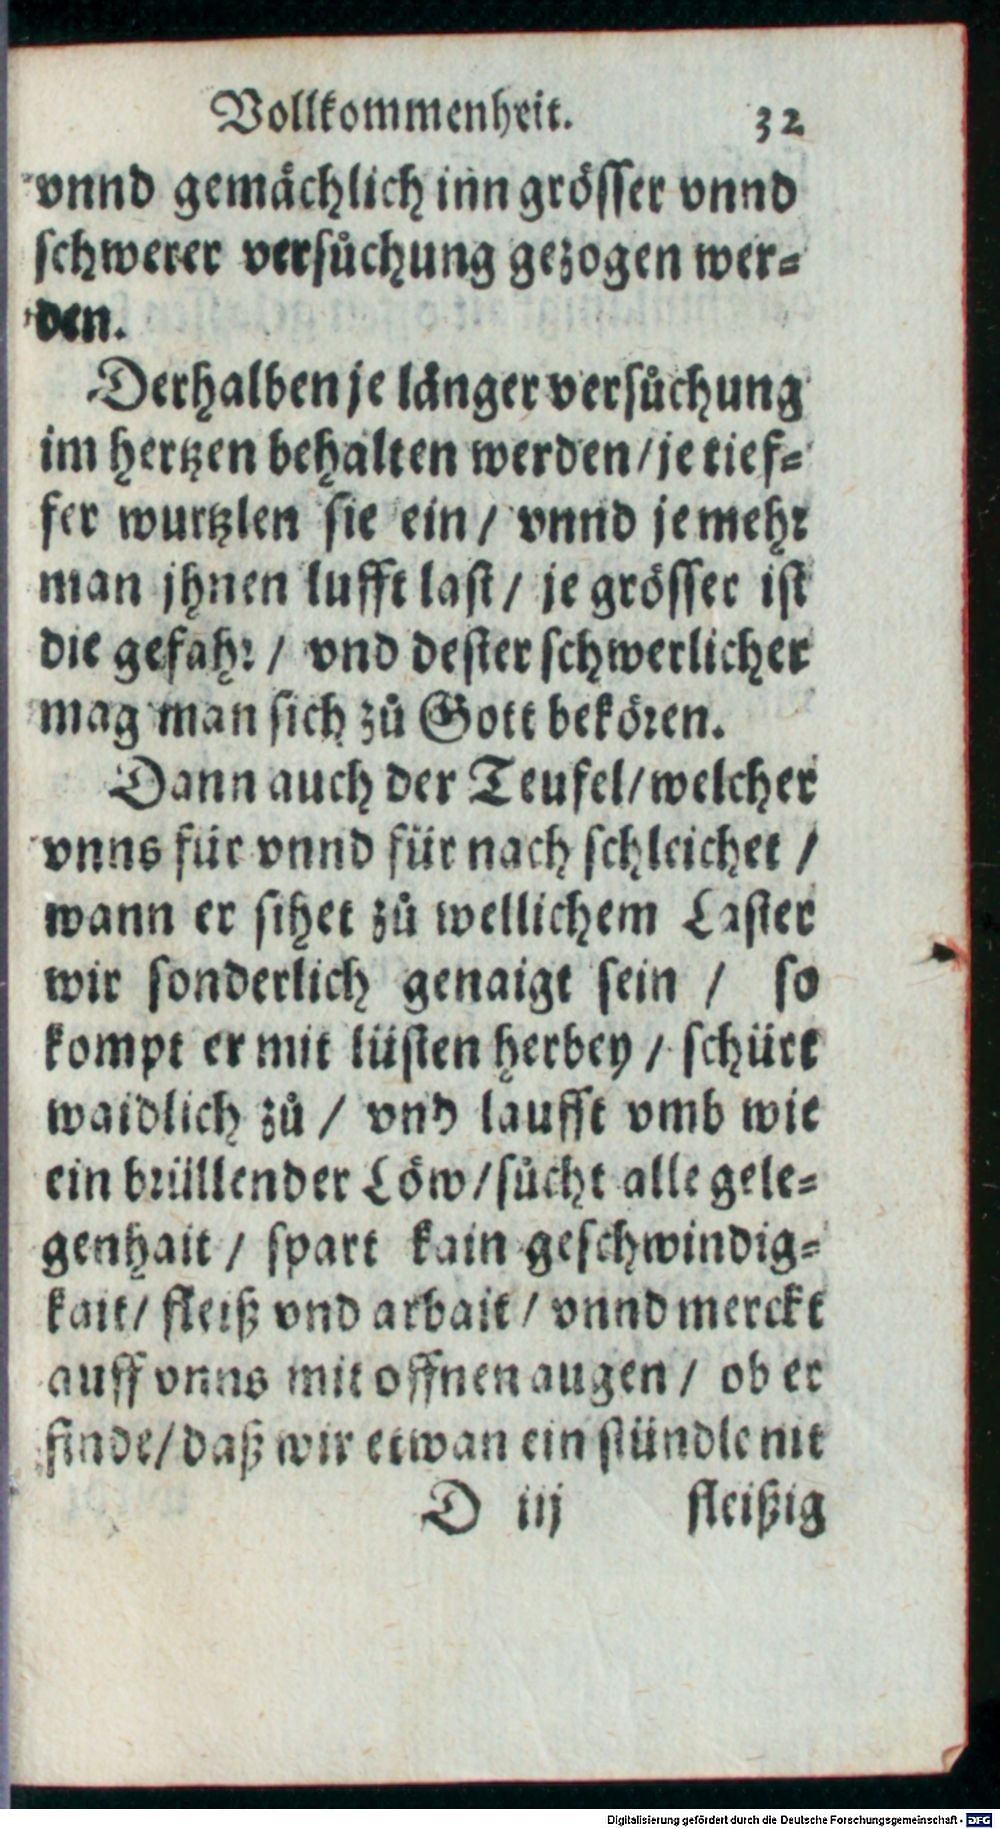 Vollkommenheit. 32
vnnd gemächlich inn grösser vnnd
schwerer versůchung gezogen wer⸗
den.
Derhalben je länger versůchung
im hertzen behalten werden / je tief⸗
fer wurtzlen sie ein / vnnd je mehr
man jhnen lufft last / je grösser ist
die gefahr / vnd dester schwerlicher
mag man sich zů Gott bekören.
Dann auch der Teufel / welcher
vnns für vnnd für nach schleichet /
wann er sihet zů wellichem Laster
wir sonderlich genaigt sein / so
kompt er mit lüsten herbey / schürt
waidlich zů / vnd laufft vmb wie
ein brüllender Löw / sůcht alle gele⸗
genhait / spart kain geschwindig⸗
kait / fleiß vnd arbait / vnnd merckt
auff vnns mit offnen augen / ob er
finde / daß wir etwan ein stündle nit
D iij fleißig
Digitalisierung gefördert durch die Deutsche Forschungsgemeinschaft - DFG